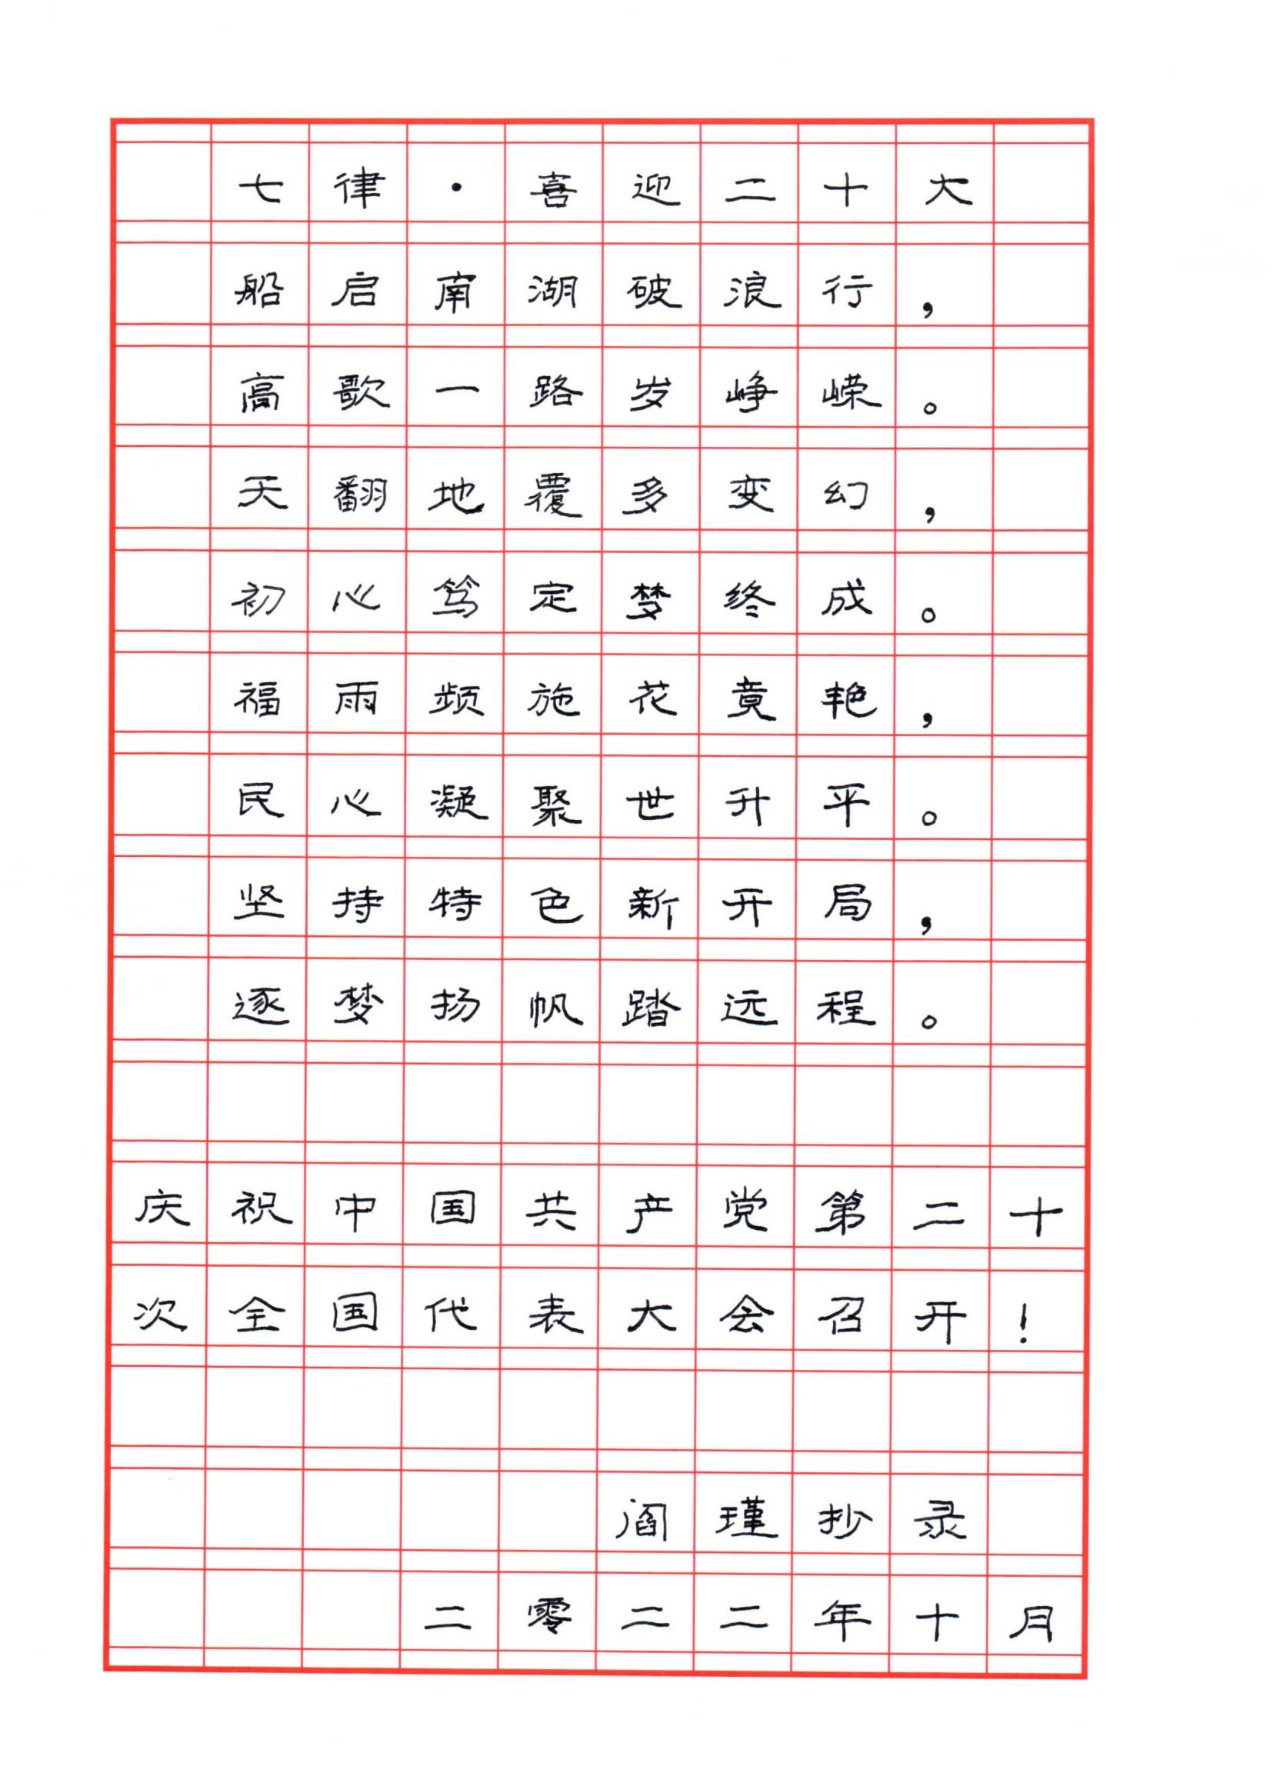 七律·喜迎二十大
船启南湖破浪行，
高歌一路岁峥嵘。
天翻地覆多变幻，
初心笃定梦终成。
福雨频施花竟艳，
民心凝聚世升平。
坚持特色新开局，
逐梦扬帆踏远程。
庆祝中国共产党第二十
次全国代表大会召开！
阎瑾抄录
二零二二年十月